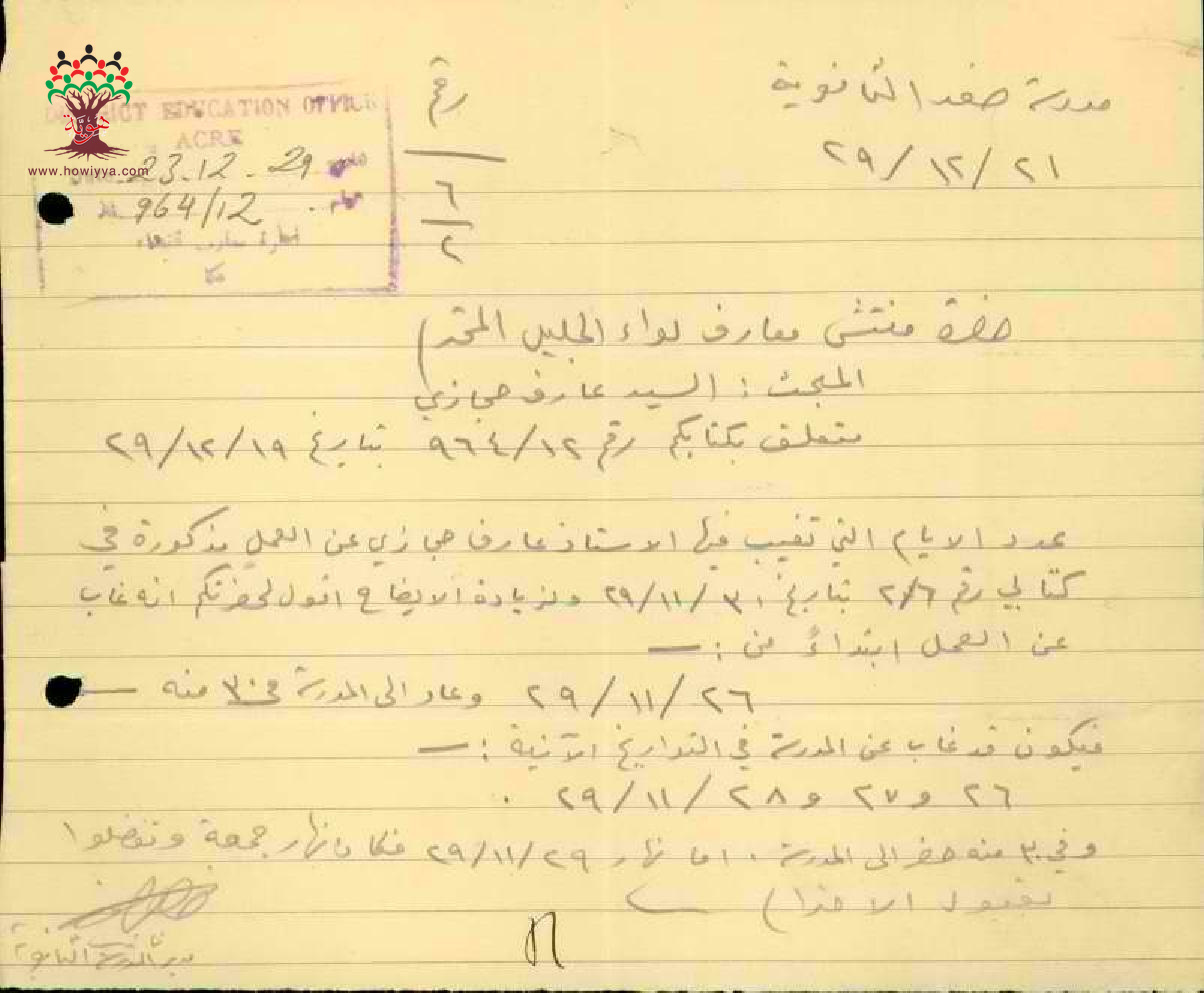 مدرسة صفد الثانوية
٢٩/١٢/٢١
رقم
٦
٢
DISTRICT EDUCATION OFFICE
ACRE
23.12.29
964/12
عكا
www.howiyya.com
حضرة مفتش معارف لواء الجليل المحترم
المبحث : السيد عارف حجازي
متعلق بكتابكم رقم ٩٦٤/١٢ بتاريخ ٢٩/١٢/١٩
عدد الايام التي تغيب فيها الاستاذ عارف حجازي عن العمل مذكورة في
كتابي رقم ٢/٦ بتاريخ ٢٩/١١/٣٠ ولزيادة الايضاح اقول لحضرتكم انه غاب
عن العمل ابتداءً من :ــ
٢٩/١١/٢٦ وعاد الى المدرسة في ٣٠ منه ــ
فيكون قد غاب عن المدرسة في التواريخ الآتية :ــ
٢٦ و ٢٧ و ٢٨/١١/٢٩ .
وفي ٣٠ منه حضر الى المدرسة . اما نهار ٢٩/١١/٢٩ فكان نهار جمعة وتفضلوا
بقبول الاحترام
مدير المدرسة الثانوية